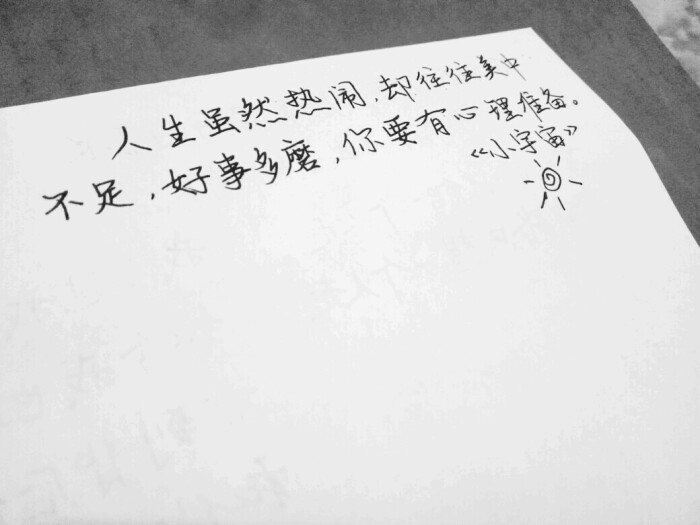 人生虽然热闹,却往往美中
不足,好事多磨,你要有心理准备。
《小宇宙》